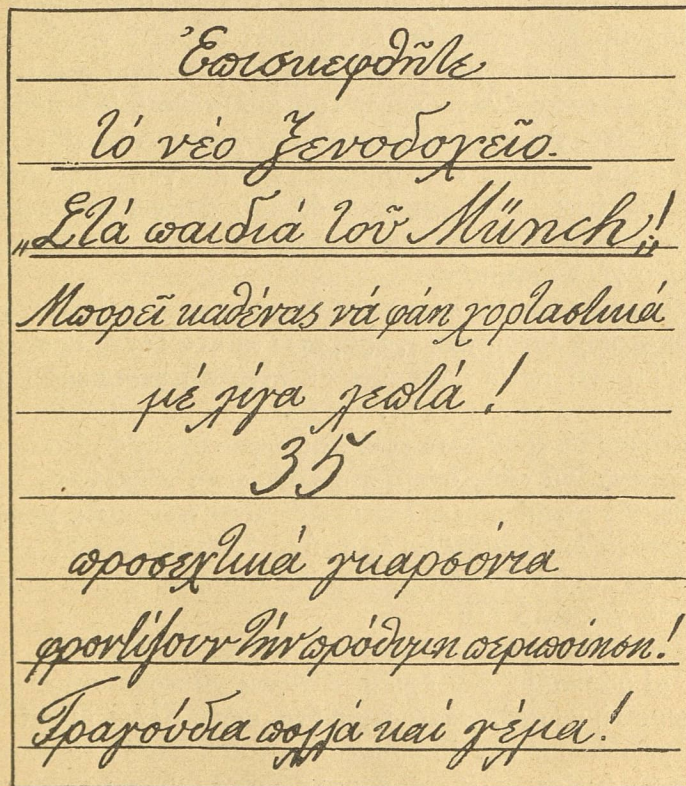 Ἐπισκεφθῆτε
τό νέο ξενοδοχεῖο.
„Στά παιδιά τοῦ Münch„!
Μπορεῖ καθένας νά φάη χορταστικά
μέ λίγα λεπτά!
35
προσεχτικά γκαρσόνια
φροντίζουν τήν πρόθυμη περιποίηση!
Τραγούδια πολλά καί γέμα!